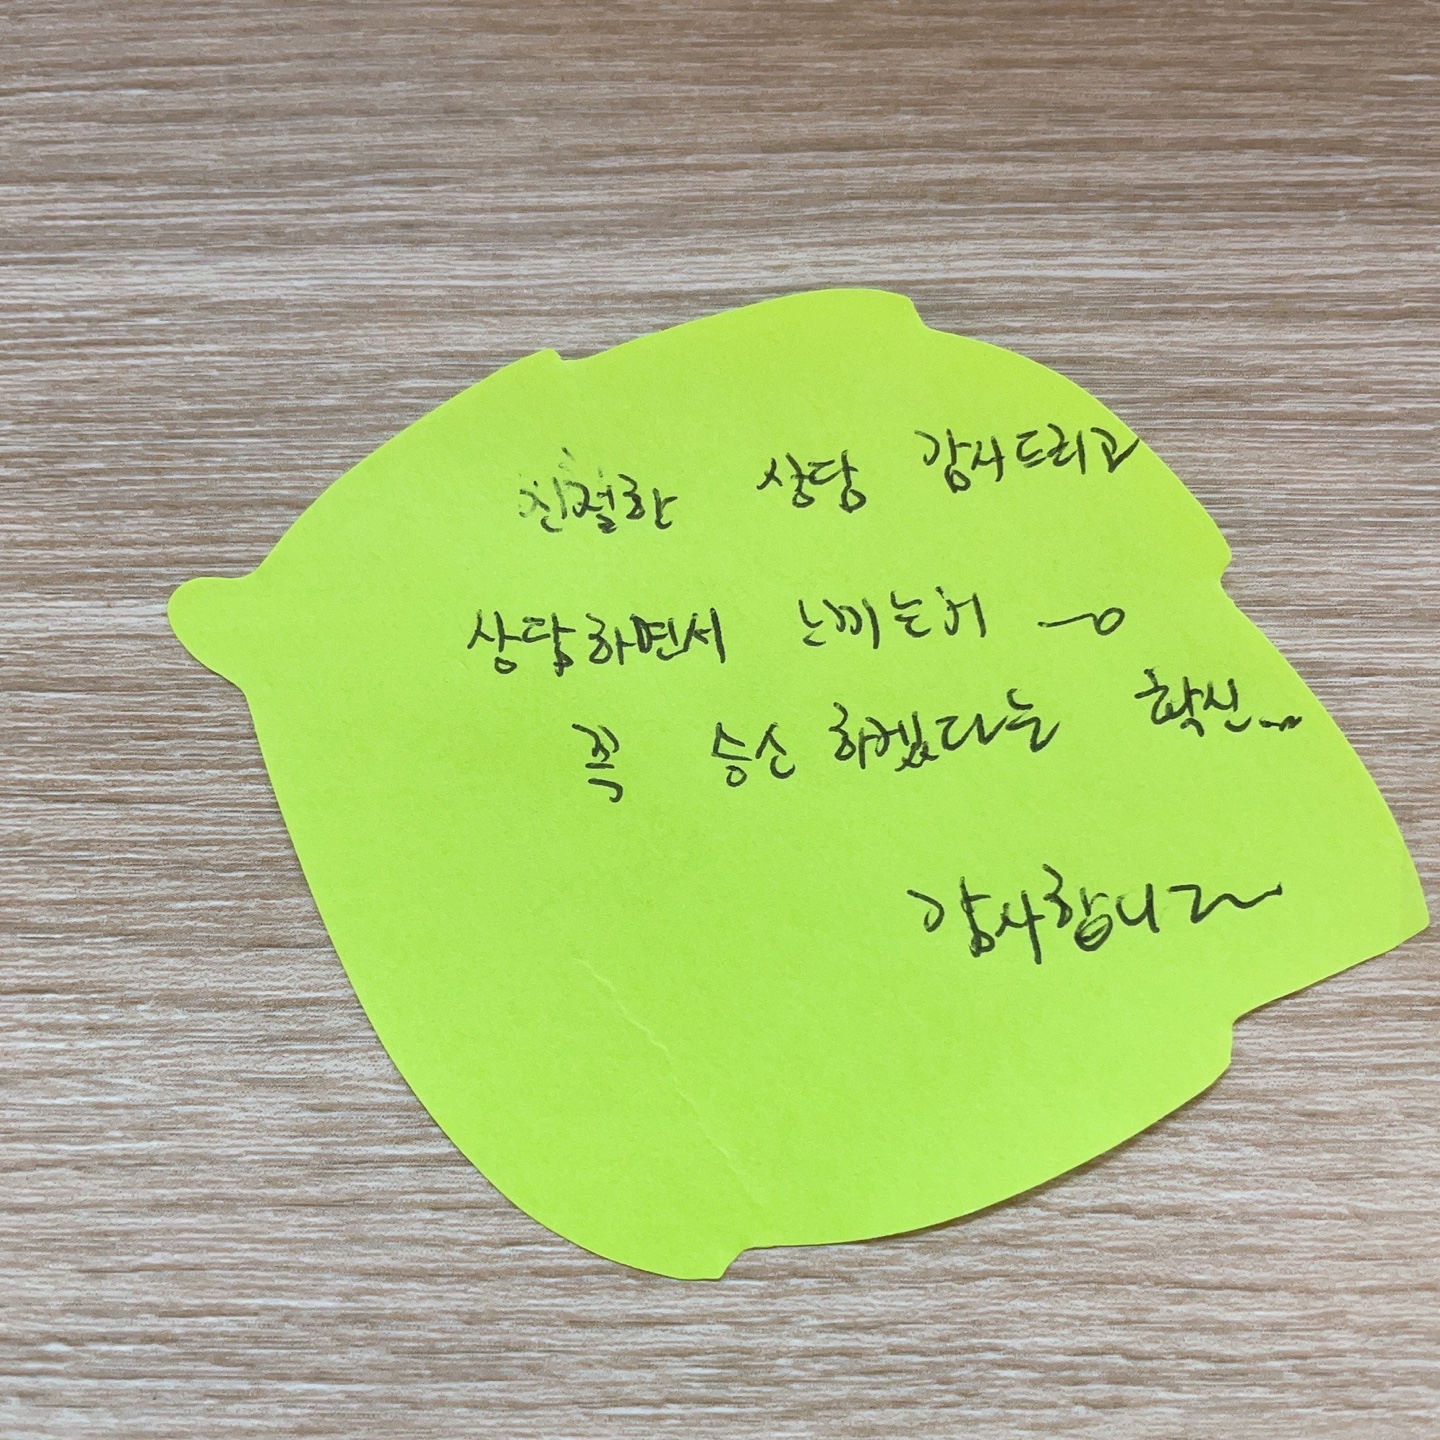 친절한 상담 감사드리고
상담하면서 느끼는거
꼭 승신하겠다는 확신...
감사합니다~